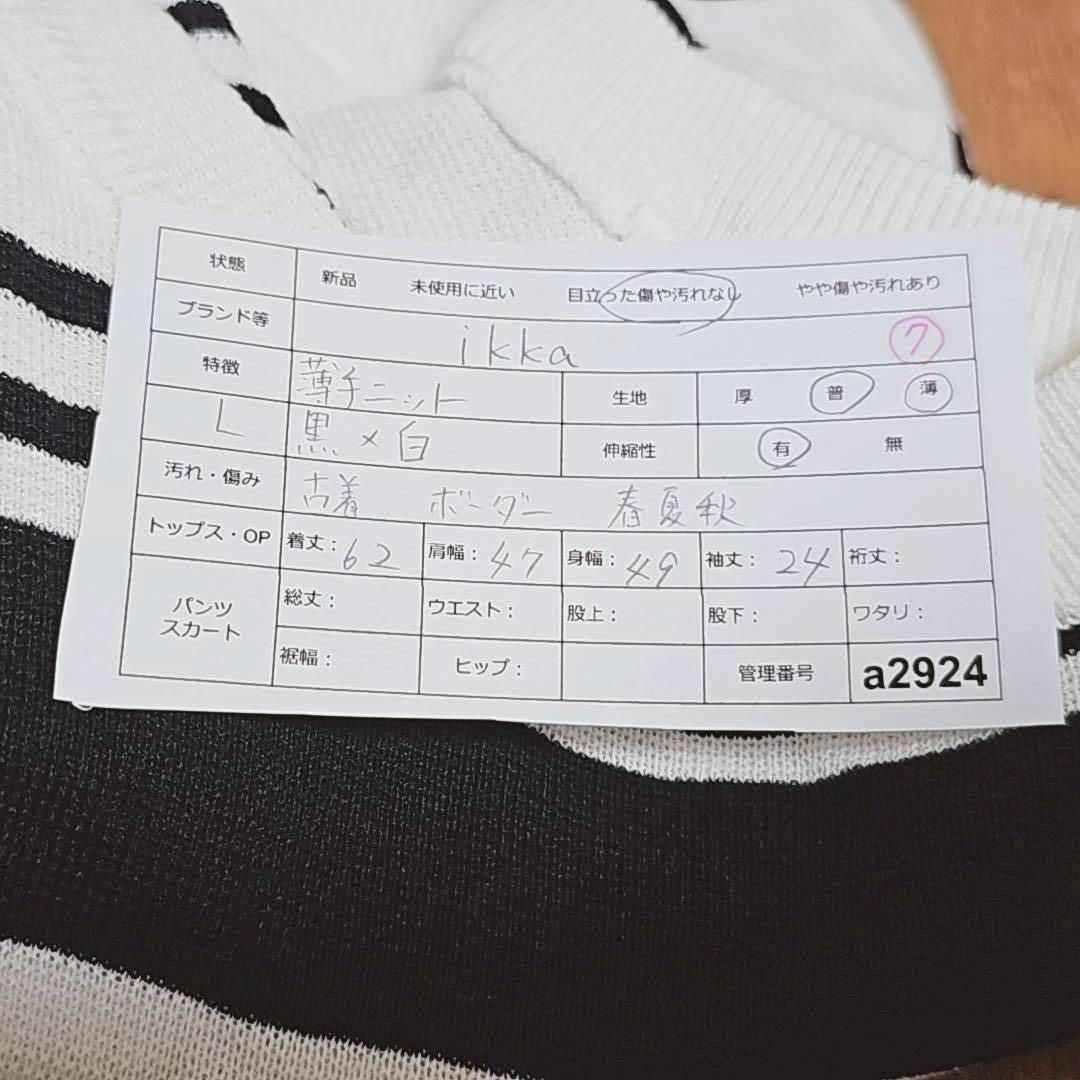 状態 新品 未使用に近い 目立った傷や汚れなし やや傷や汚れあり
ブランド等 ikka ⑦
特徴 薄手ニット 生地 厚 普 薄
L 黒×白 伸縮性 有 無
汚れ・傷み 古着 ボーダー 春夏秋
トップス・OP 着丈：62 肩幅：47 身幅：49 袖丈：24 裄丈：
パンツ スカート 総丈： ウエスト： 股上： 股下： ワタリ：
裾幅： ヒップ： 管理番号 a2924